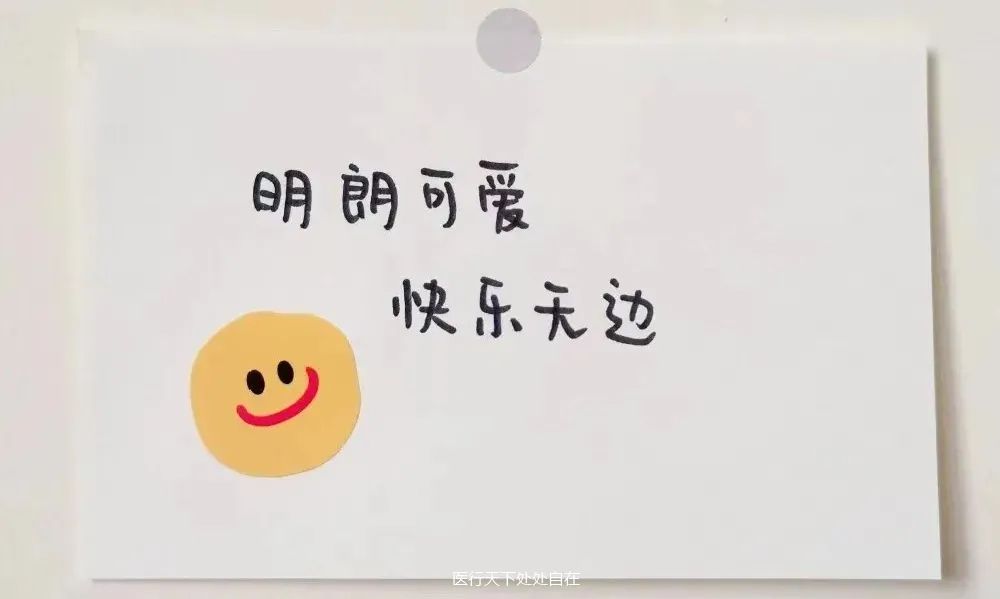 明朗可爱
快乐无边
医行天下处处自在